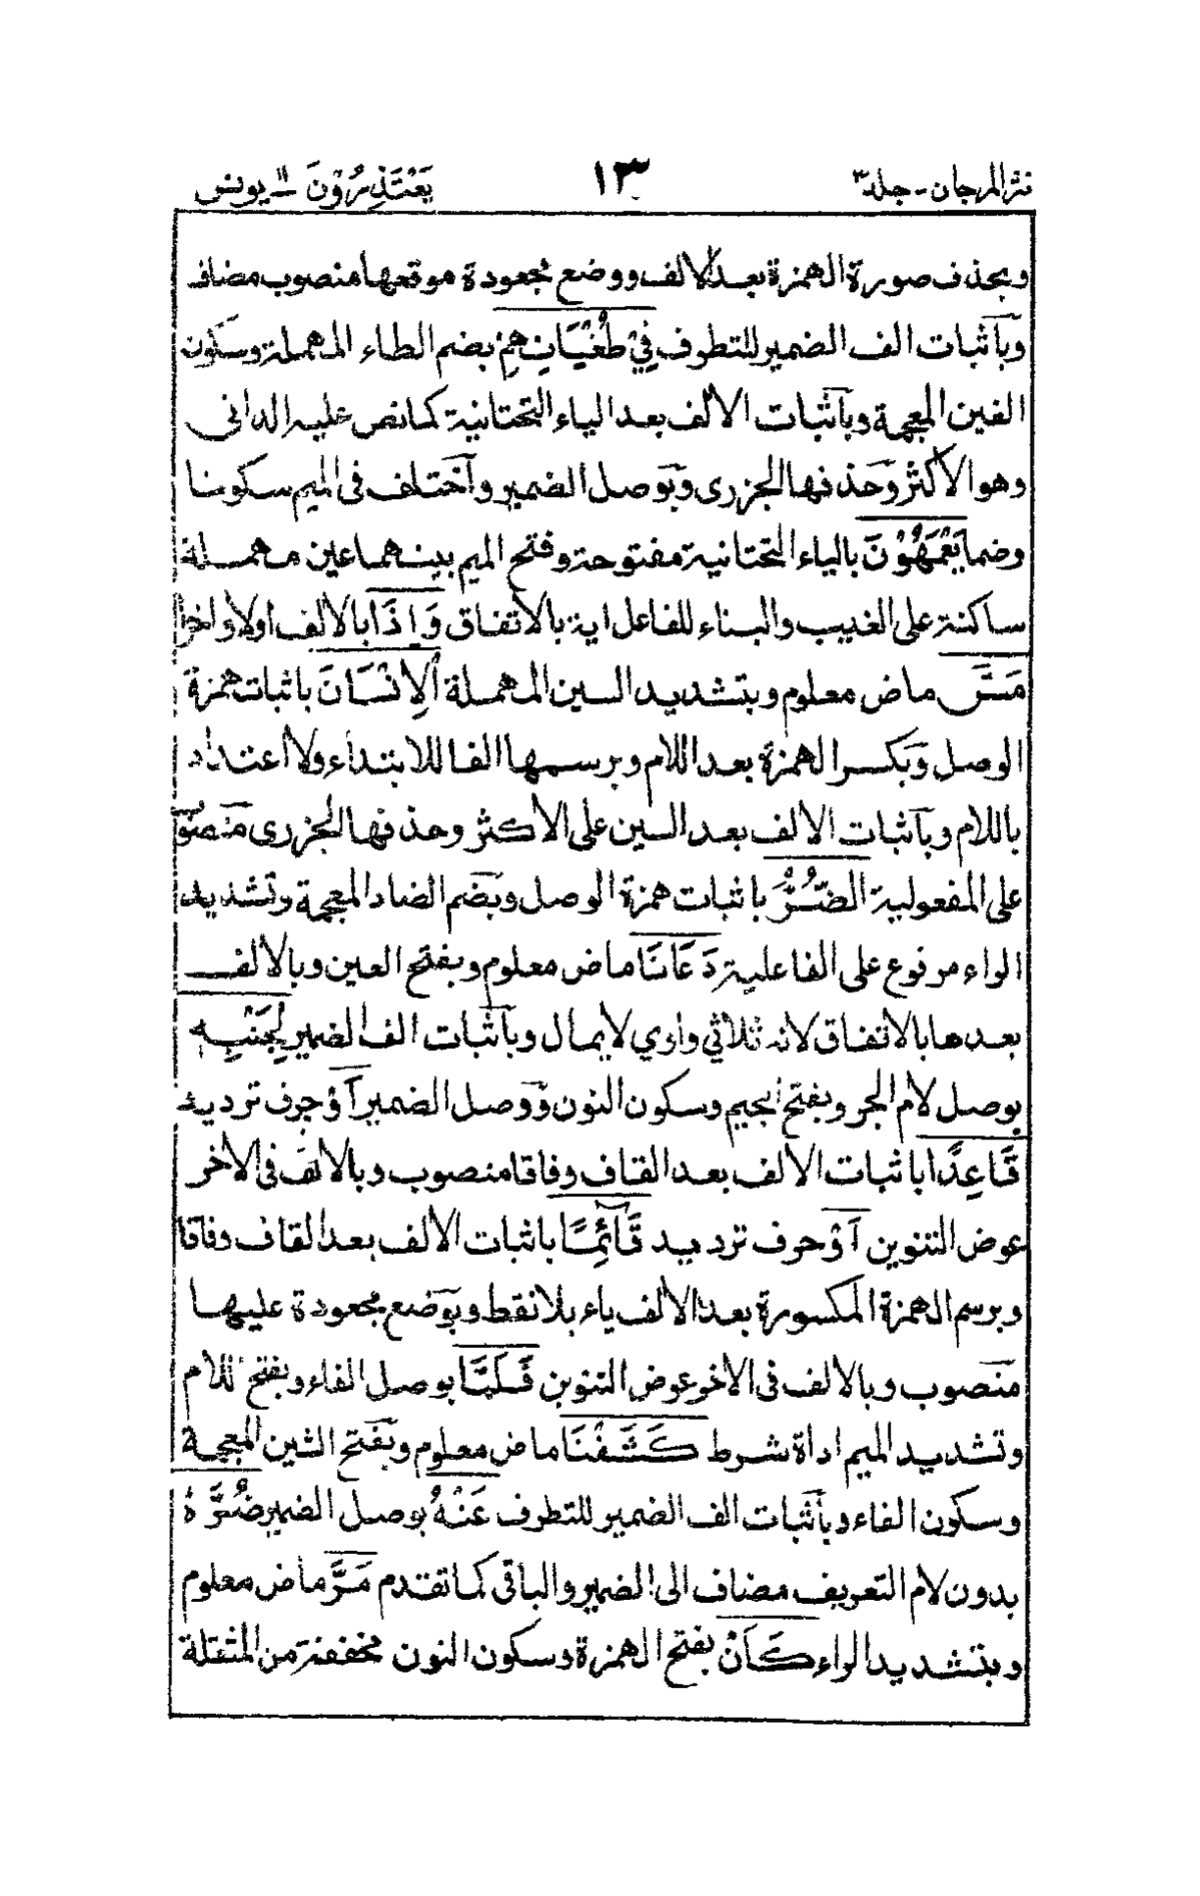 نثر المرجان - جلد ٣ ١٣ يَعْتَذِرُوْنَ ١١ يونس
وبحذف صورة الهمزة بعد الالف ووضع مجعودة موقعها منصوب مضاف
وبآثبات الف الضمير للتطرف فِيْ طُغْيَانِهِمْ بضم الطاء المهملة وسكون
الغين المعجمة وبآثبات الالف بعد الياء التحتانية كما نص عليه الدانى
وهو الاكثر وَحذفها الجزرى وبَوصل الضمير وآختلف فى الميم سكونا
وضما يَعْمَهُوْنَ بالياء التحتانية مفتوحة وفتح الميم بينهما عين مهملة
ساكنة على الغيب والبناء للفاعل اية بالاتفاق وَاِذَا بالالف اولا واخرا
مَسَّ ماض معلوم وبتشديد السين المهملة اَلْاِنْسَانَ باثبات همزة
الوصل وَبكسر الهمزة بعد اللام وبرسمها الفا للابتداء ولا اعتداد
باللام وبآثبات الالف بعد السين على الاكثر وحذفها الجزرى منصوَب
على المفعولية الضُّرُّ باثبات همزة الوصل وبَضم الضاد المعجمة وتشديد
الراء مرفوع على الفاعلية دَعَانَا ماض معلوم وبفتح العين وبالالف
بعدها بالاتفاق لانه ثلاثي واوي لايمال وبآثبات الف الضمير لِجَنْبِهٖ
بوصل لام الجر وبفتح الجيم وسكون النون وَوصل الضمير اَوْ حرف ترديد
قَاعِدًا باثبات الالف بعد القاف وفاقا منصوب وبالالف فى الاخر
عوض التنوين اَوْ حرف ترديد قَآئِمًا باثبات الالف بعد القاف وفاقا
وبرسم الهمزة المكسورة بعد الالف ياء بلا نقط وبَوضع مجعودة عليها
منَصوب وبالالف فى الاخر عوض التنوين فَلَمَّا بوصل الفاء وبفتح اللام
وتشديد الميم اداة شرط كَشَفْنَا ماض معلوم وبَفتح الشين المعجمة
وسكون الفاء وبآثبات الف الضمير للتطرف عَنْهُ بوصل الضمير ضُرَّهٗ
بدون لام التعريف مضاف الى الضمير والباقى كما تقدم مَرَّ ماض معلوم
وبتشديد الراء كَاَنْ بفتح الهمزة وسكون النون مخففة من المثقلة